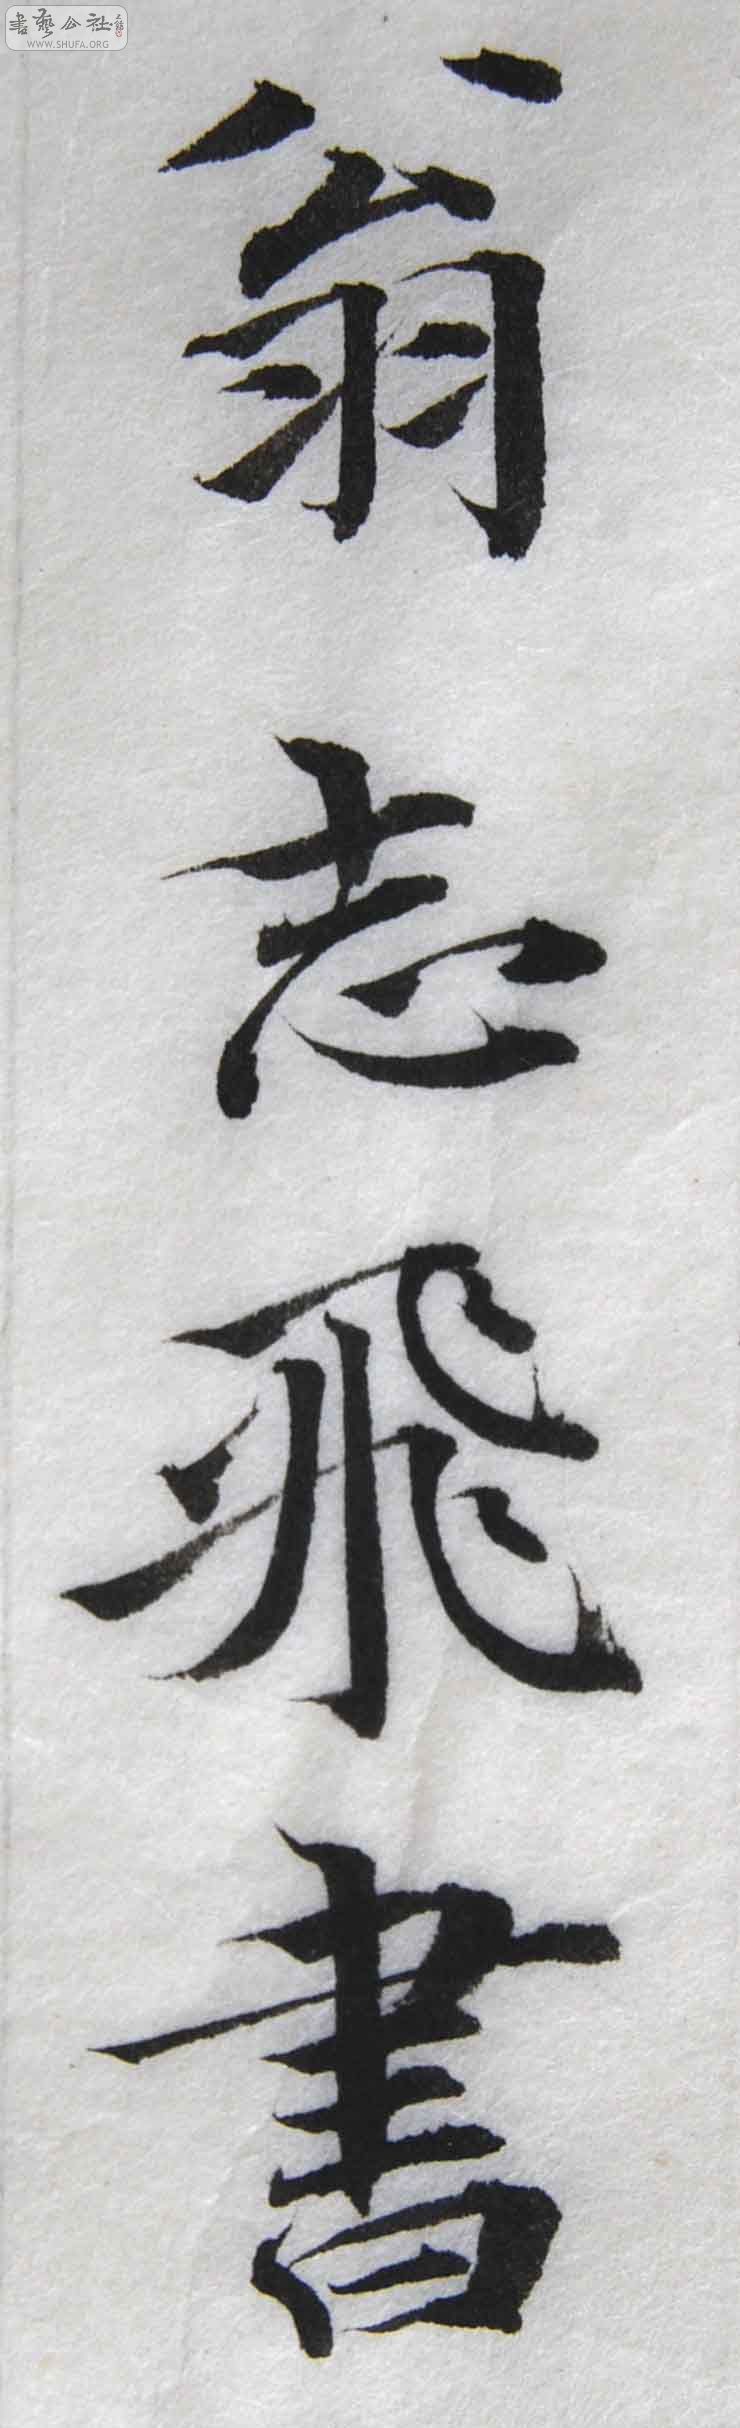 書藝公社
WWW.SHUFA.ORG
翁志飛書